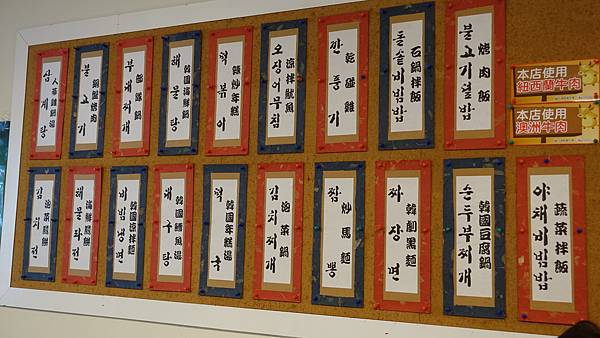 人蔘雞鍋湯
삼계탕
銅盤烤肉
불고기
部隊鍋
부대찌개
韓國海鮮鍋
해물탕
辣炒年糕
떡볶이
涼拌魷魚
오징어무침
乾碰雞
깐풍기
石鍋拌飯
돌솥비빔밥
烤肉飯
불고기덮밥
本店使用
紐西蘭牛肉
本店使用
澳洲牛肉
泡菜煎餅
김치전
海鮮煎餅
해물파전
韓國涼拌麵
비빔냉면
韓國鱈魚湯
대구탕
韓國年糕湯
떡국
泡菜鍋
김치찌개
炒馬麵
짬뽕
韓劇黑麵
짜장면
韓國豆腐鍋
순두부찌개
蔬菜拌飯
야채비빔밥